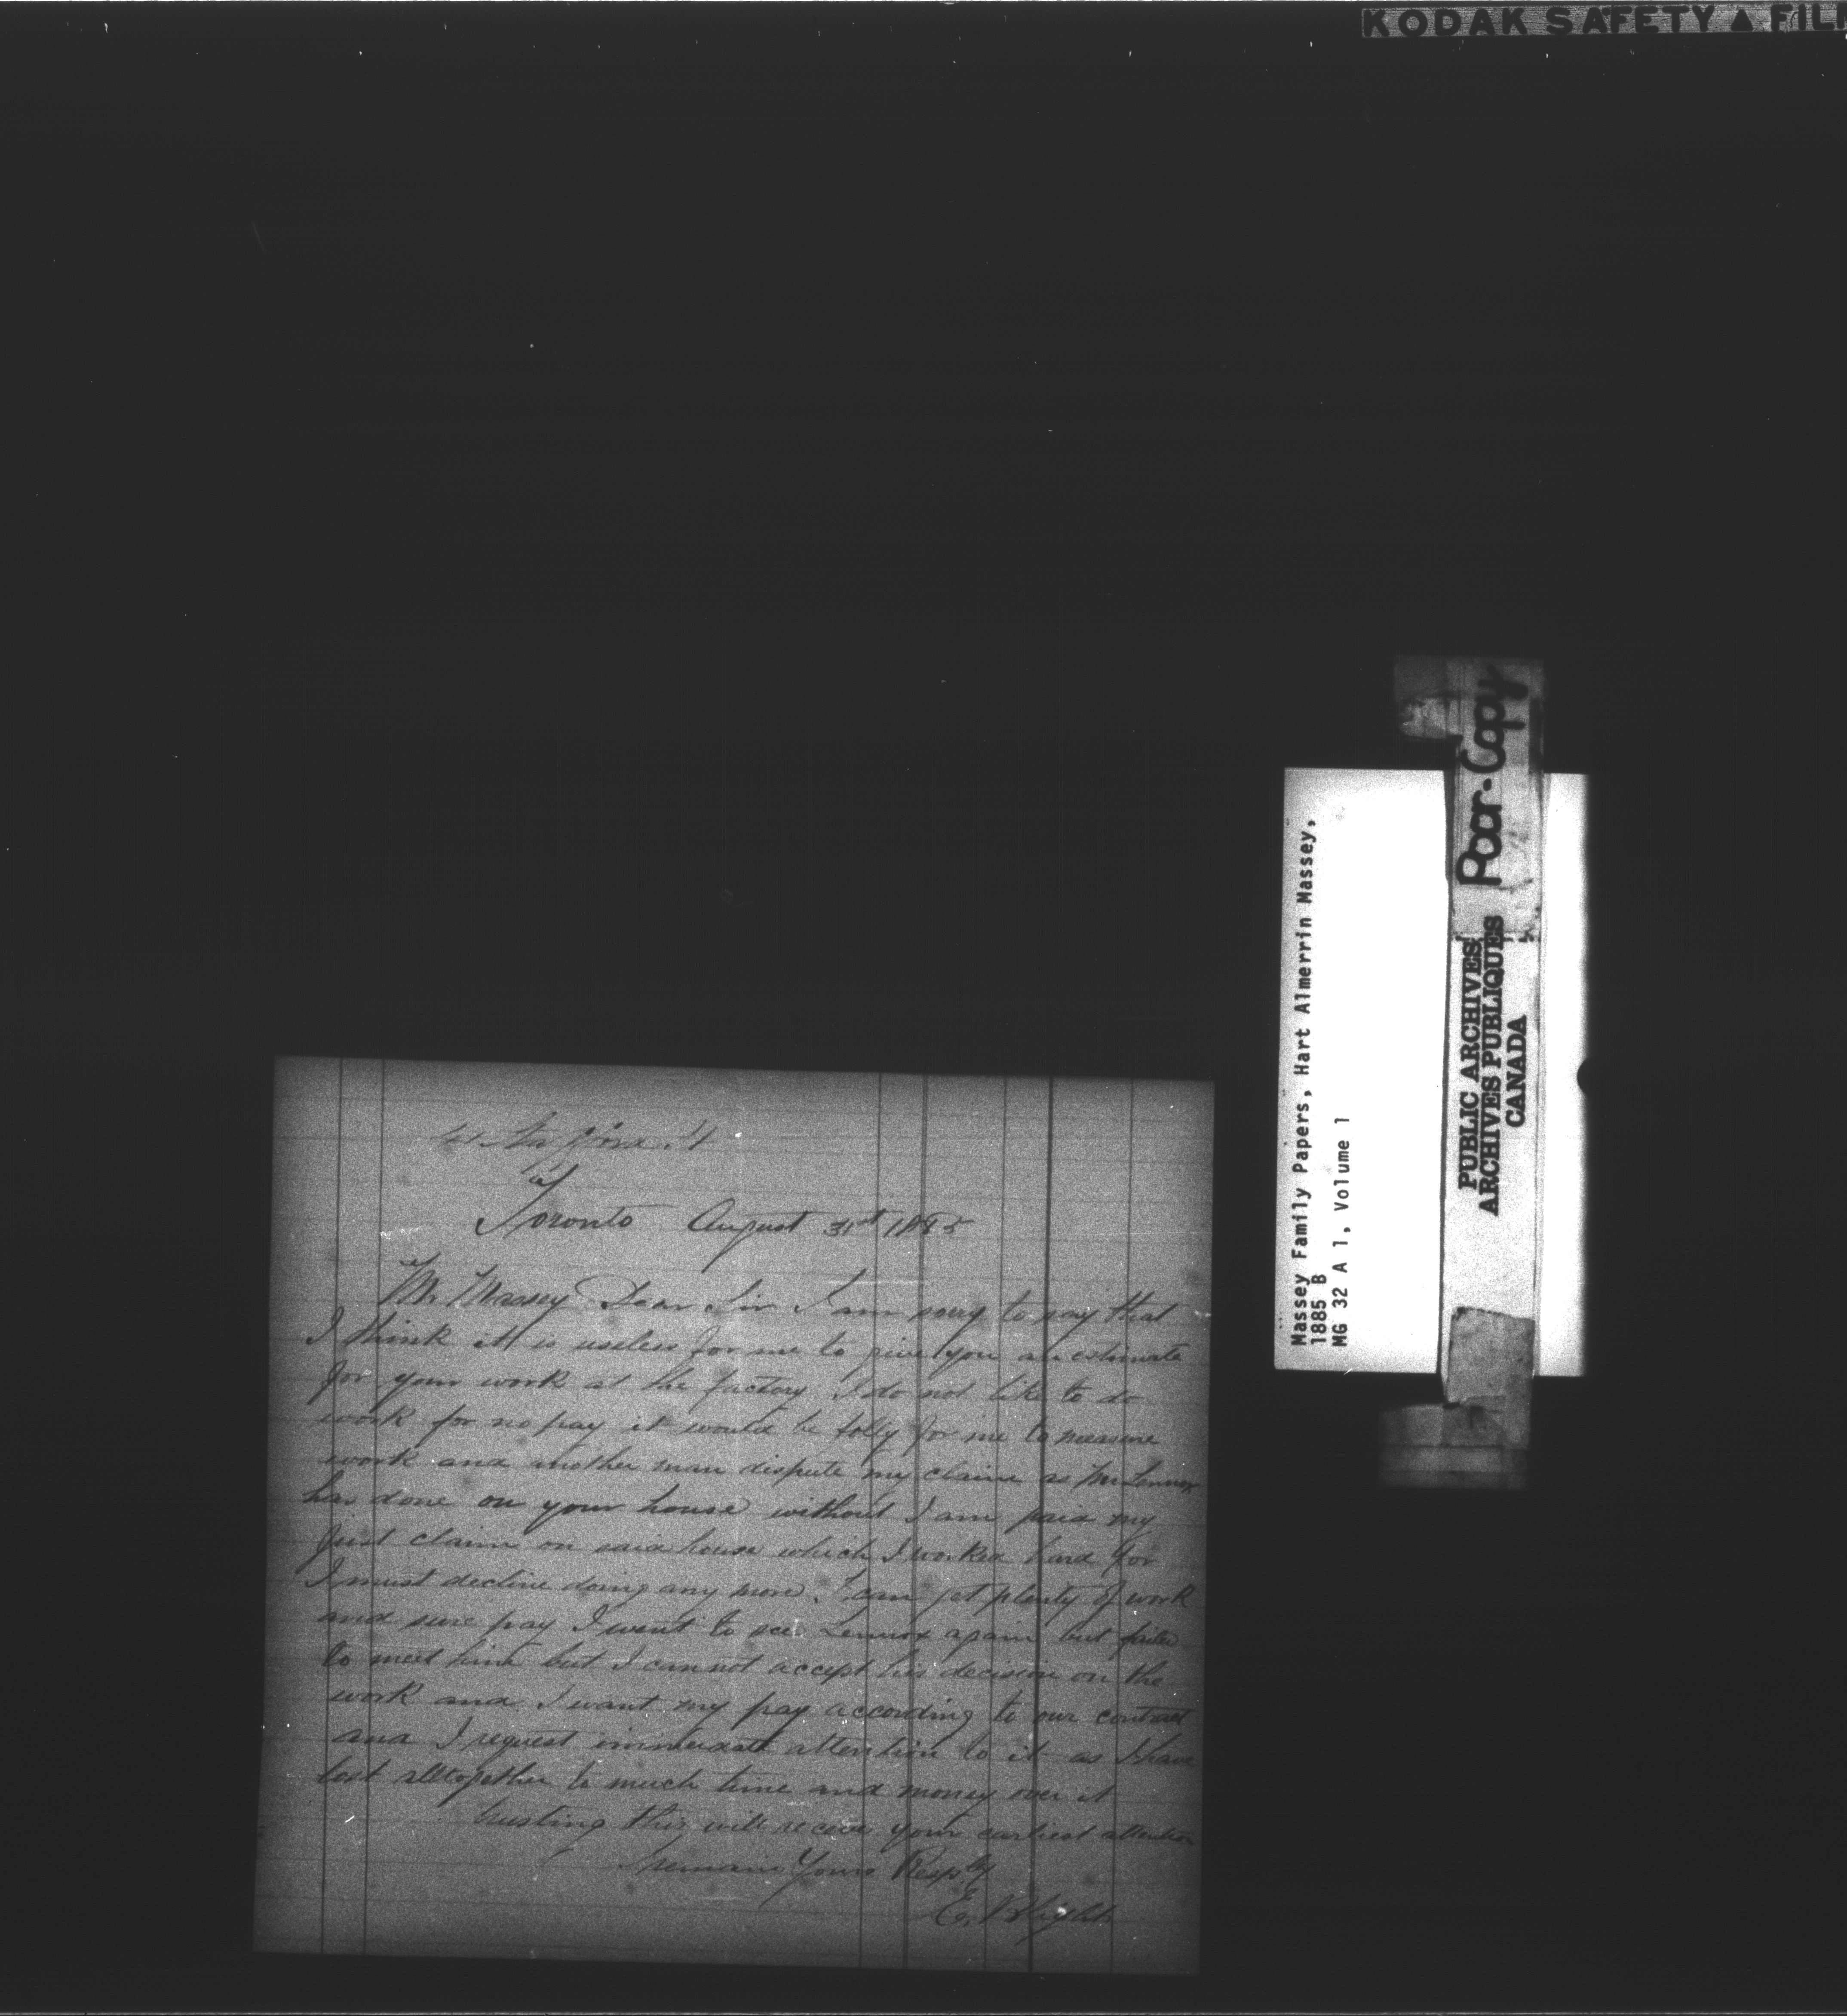 KODAK SAFETY ▲ FILM
St
Toronto August 31st 1885
Mr Massey Dear Sir I am sorry to say that
I think it is useless for me to give you an estimate
for your work at the factory I do not like to do
work for no pay it would be folly for me to measure
work and another man dispute my claim as Mr Lennox
has done on your house without I am paid my
just claim on said house which I worked hard for
I must decline doing any more. I can get plenty of work
and sure pay I went to see Lennox again but failed
to meet him but I cannot accept his decision on the
work and I want my pay according to our contract
and I request immediate attention to it as I have
lost alltogether to much time and money over it
trusting this will receive your earliest attention
I remain Yours Resply
E. Blight
Massey Family Papers, Hart Almerrin Massey,
1885 B
MG 32 A 1, Volume 1
Poor-Copy
PUBLIC ARCHIVES
ARCHIVES PUBLIQUES
CANADA